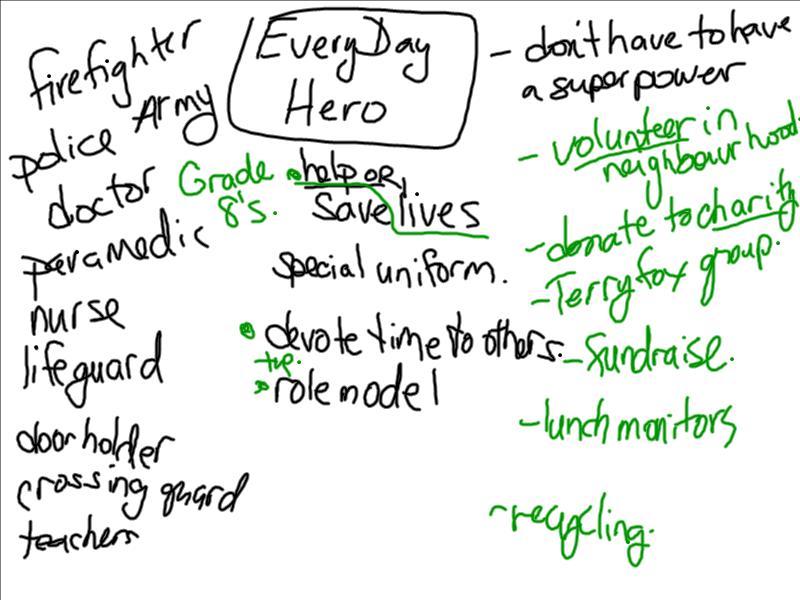 EveryDay
Hero
firefighter
Army
police
doctor
paramedic
nurse
lifeguard
door holder
crossing guard
teachers
Grade
8's.
help or
Save lives
special uniform.
devote time to others.
+ve.
role model
- don't have to have
a super power
- volunteer in
neighbourhood.
- donate to charity
- Terry fox group.
- fundraise.
- lunch monitors
- recycling.